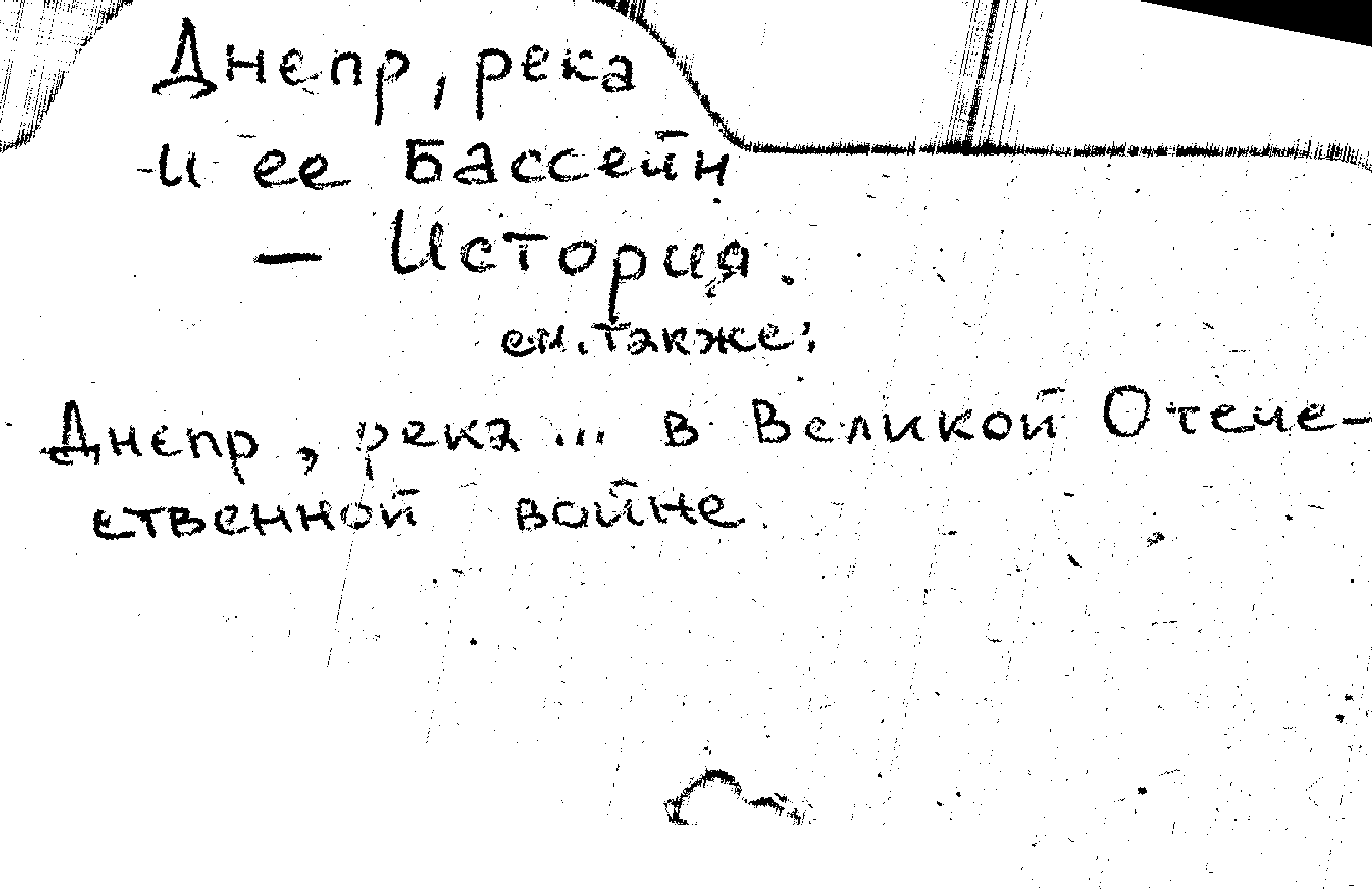 Днепр, река
и ее Бассейн
— История.
см. также:
Днепр, река ... в Великой Отече-
ственной войне.